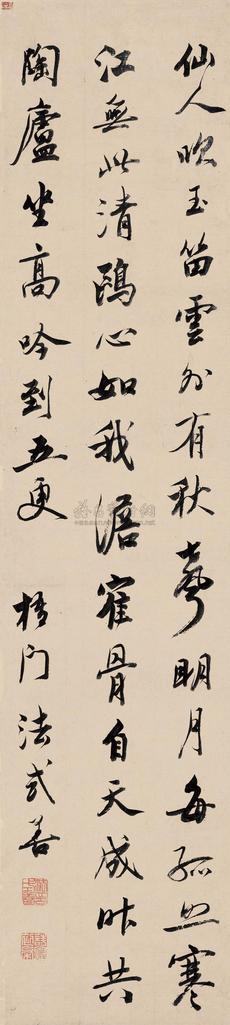 仙人吹玉笛雲外有秋聲明月每孤照寒
江無此清鷗心如我澹寉骨自天成昨共
陶廬坐高吟到五更 梧門法式善